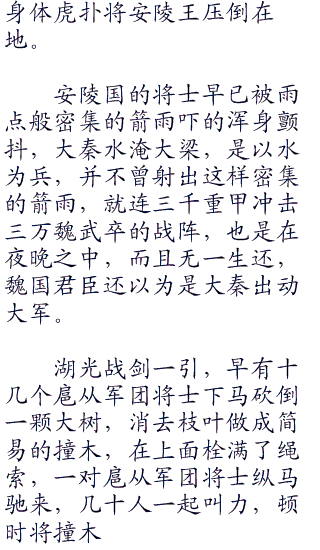 身体虎扑将安陵王压倒在
地。
安陵国的将士早已被雨
点般密集的箭雨吓的浑身颤
抖，大秦水淹大梁，是以水
为兵，并不曾射出这样密集
的箭雨，就连三千重甲冲击
三万魏武卒的战阵，也是在
夜晚之中，而且无一生还，
魏国君臣还以为是大秦出动
大军。
湖光战剑一引，早有十
几个扈从军团将士下马砍倒
一颗大树，消去枝叶做成简
易的撞木，在上面栓满了绳
索，一对扈从军团将士纵马
驰来，几十人一起叫力，顿
时将撞木